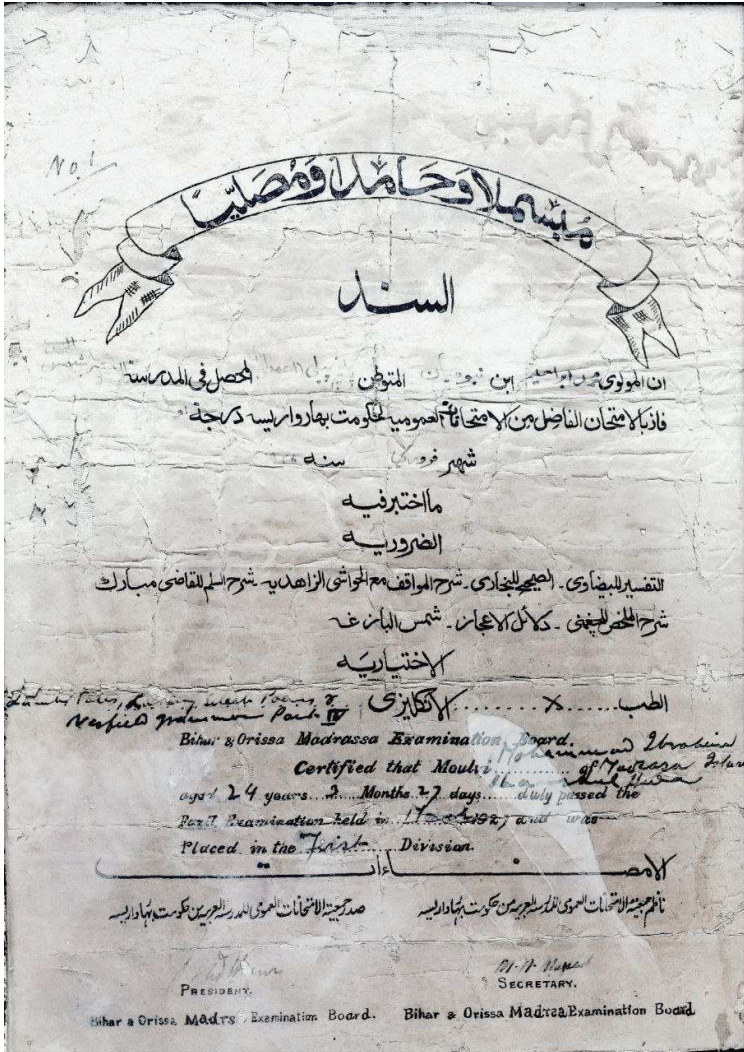 No. 1
مُبسملا وَحَامدا وَمُصَليّا
السند
ان المولوى محمد ابراهيم ابن المتوطن المحصل فى المدرسة
فاز بالامتحان الفاضل من الامتحانات العمومية لحكومت بهار واريسه درجة
شهر سنه
ما اختبر فيه
الضرورية
التفسير للبيضاوى - الصحيح للبخارى - شرح المواقف مع الحواشى الزاهديه - شرح السلم للقاضى مبارك
شرح الملخص للچغمنى - دلائل الاعجاز - شمس البازغه
الاختياريَه
الطب ....... x ....... الانگليزى
Nesfield Grammar Part IV
Bihar & Orissa Madrassa Examination Board.
Certified that Moulvi Mohammad Ibrahim of Madrasa
aged 24 years 2 Months 27 days duly passed the
Fazil Examination held in and was
Placed in the First Division.
الامضاءات
ناظم جمعية الامتحانات العمومى للمدرسة العربية من حكومت بهار واريسه
صدر جمعية الامتحانات العمومى للمدرسة العربية من حكومت بهار واريسه
PRESIDENT.
SECRETARY.
Bihar & Orissa Madrs Examination Board.
Bihar & Orissa Madrsa Examination Board